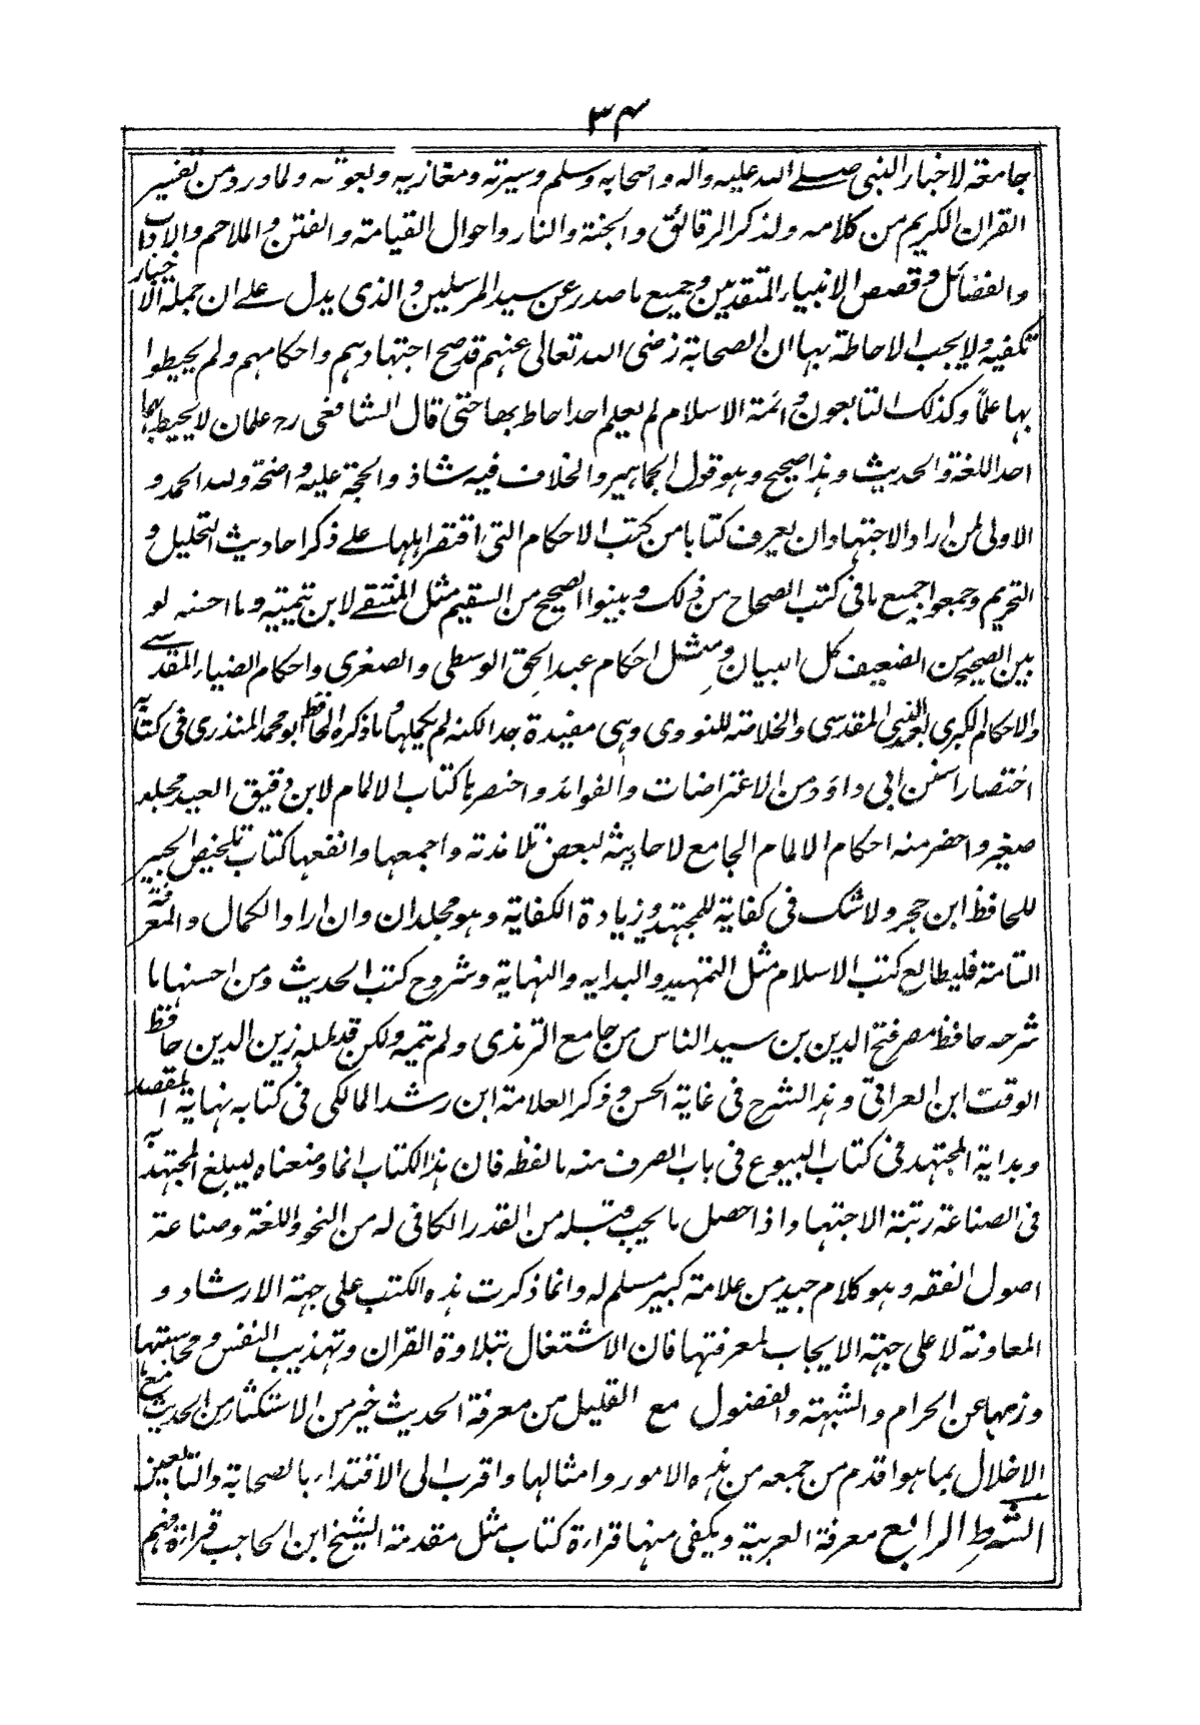 ٣٤
جامعة لاخبار النبى صلے اللہ عليه واله واصحابه وسلم وسيرته ومغازيه وبعوثه ولما ورد من تفسير
القران الكريم من كلامه ولذكر الرقائق والجنة والنار واحوال القيامة والفتن والملاحم والاداب
والفضائل وقصص الانبياء المتقدمين وجميع ما صدر عن سيد المرسلين والذى يدل علے ان جملة الاخبار
تكفيه ولا يجب الاحاطة بها ان الصحابة رضى اللہ تعالى عنهم قد صح اجتهادهم واحكامهم ولم يحيطوا
بها علمًا وكذلك التابعون وائمة الاسلام لم يعلم احد احاط بها حتى قال الشافعى رح علمان لا يحيط بهما
احد اللغة والحديث وهذا صحيح وهو قول الجماهير والخلاف فيه شاذ والحجة عليه واضحة ولله الحمد و
الاولى لمن اراد الاجتهاد ان يعرف كتابا من كتب الاحكام التى اقتصر اهلها علے ذكر احاديث التحليل و
التحريم وجمعوا جميع ما فى كتب الصحاح من ذلك وبينوا الصحيح من السقيم مثل المنتقے لابن تيمية وما احسنه لو
بين الصحيح من الضعيف كل البيان ومثل احكام عبد الحق الوسطى والصغرى واحكام الضياء المقدسے
والاحكام الكبرى لعبد الغنى المقدسى والخلاصة للنووى وهى مفيدة جدا لكنه لم يكملها وما ذكره الحافظ ابو محمد المنذرى فى كتابه
اختصار سنن ابى داؤد من الاعتراضات والفوائد واخصرها كتاب الالمام لابن دقيق العيد مجلد
صغير واخصر منه احكام الالمام الجامع لاحاديثه لبعض تلامذته واجمعها وانفعها كتاب تلخيص الحبير
للحافظ ابن حجر ولا شك فى كفاية للمجتهد وزيادة الكفاية وهو مجلدان وان اراد الكمال والمعرفة
التامة فليطالع كتب الاسلام مثل التمهيد والبدايه والنهاية وشروح كتب الحديث ومن احسنها ما
شرحه حافظ مصر فتح الدين بن سيد الناس من جامع الترمذى ولم يتمه ولكن قد كمله زين الدين حافظ
الوقت ابن العراقى وهذا الشرح فى غاية الحسن وذكر العلامة ابن رشد المالكى فى كتابه نهاية المقتصد
وبداية المجتهد فى كتاب البيوع فى باب الصرف منه ما لفظه فان هذا الكتاب انما وضعناه ليبلغ المجتهد به
فى الصناعة رتبة الاجتهاد اذا حصل ما يجب قبله من القدر الكافى له من النحو واللغة وصناعة
اصول الفقه وهو كلام جيد من علامة كبير مسلم له وانما ذكرت هذه الكتب على جهة الارشاد و
المعاونة لا على جهة الايجاب لمعرفتها فان الاشتغال بتلاوة القران وتهذيب النفس ومحاسبتها
وزمها عن الحرام والشبهة والفضول مع القليل من معرفة الحديث خير من الاستكثار من الحديث مع
الاخلال بما هو اقدم من جمعه من هذه الامور وامثالها واقرب الى الاقتداء بالصحابة والتابعين
الشرط الرابع معرفة العربية ويكفى منها قراءة كتاب مثل مقدمة الشيخ ابن الحاجب قراءة فهم